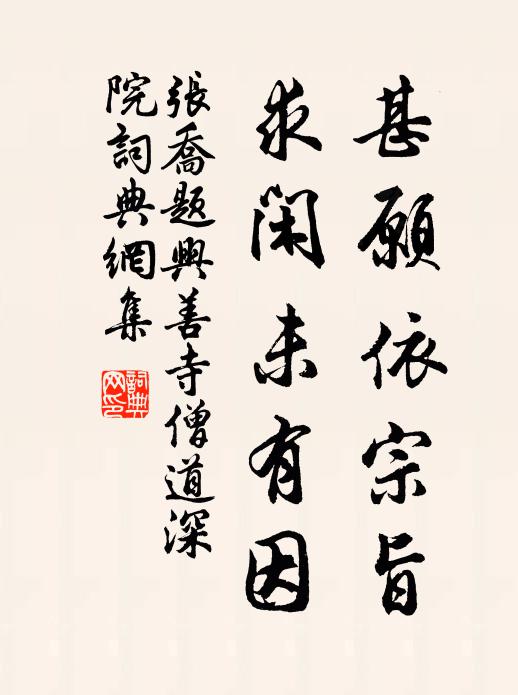 甚願依宗旨
求閑未有因
張喬題興善寺僧道深
院詞典網集
詞典
网印